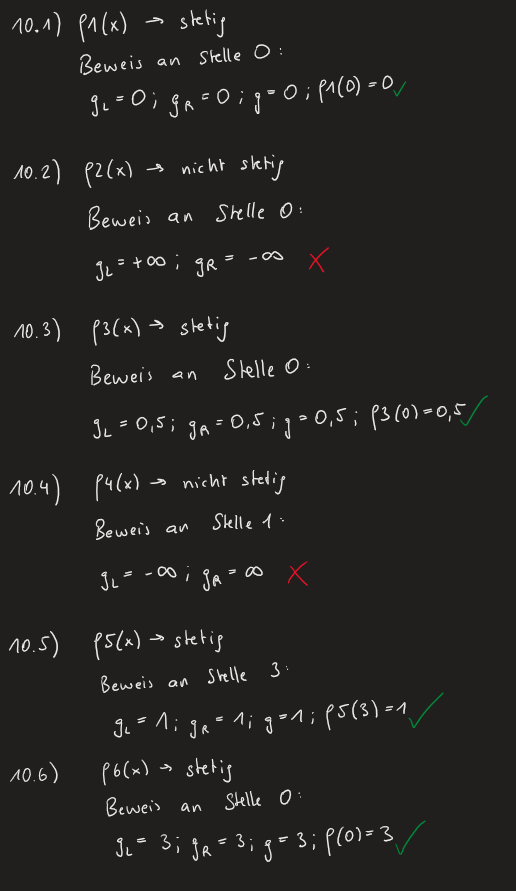 10.1) f1(x) → stetig
Beweis an Stelle 0:
gL = 0; gR = 0; g = 0; f1(0) = 0 ✓
10.2) f2(x) → nicht stetig
Beweis an Stelle 0:
gL = +∞; gR = -∞ ✗
10.3) f3(x) → stetig
Beweis an Stelle 0:
gL = 0,5; gR = 0,5; g = 0,5; f3(0) = 0,5 ✓
10.4) f4(x) → nicht stetig
Beweis an Stelle 1:
gL = -∞; gR = ∞ ✗
10.5) f5(x) → stetig
Beweis an Stelle 3:
gL = 1; gR = 1; g = 1; f5(3) = 1 ✓
10.6) f6(x) → stetig
Beweis an Stelle 0:
gL = 3; gR = 3; g = 3; f(0) = 3 ✓